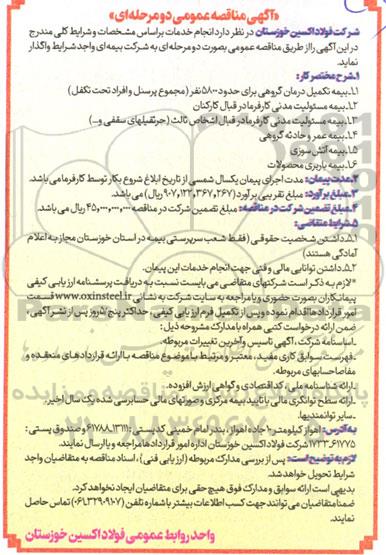 «آگهی مناقصه عمومی دو مرحله‌ای»
شرکت فولاد اکسین خوزستان در نظر دارد انجام خدمات براساس مشخصات و شرایط کلی مندرج
در این آگهی را از طریق مناقصه عمومی بصورت دو مرحله ای به شرکت بیمه ای واجد شرایط واگذار
نماید.
۱.شرح مختصر کار:
۱.۱.بیمه تکمیل درمان گروهی برای حدود ۵۸۰۰ نفر (مجموع پرسنل و افراد تحت تکفل)
۱.۲.بیمه مسئولیت مدنی کارفرما در قبال کارکنان
۱.۳.بیمه مسئولیت مدنی کارفرما در قبال اشخاص ثالث (جرثقیلهای سقفی و...)
۱.۴.بیمه عمر و حادثه گروهی
۱.۵.بیمه آتش سوزی
۱.۶.بیمه باربری محصولات
۲.مدت پیمان: مدت اجرای پیمان یکسال شمسی از تاریخ ابلاغ شروع بکار توسط کارفرما می باشد.
۳.مبلغ برآورد: مبلغ تقریبی برآورد (۹۰۷,۱۲۲,۳۶۷,۲۶۷ ریال) می باشد.
۴.مبلغ تضمین شرکت در مناقصه: مبلغ تضمین شرکت در مناقصه ۴۵,۰۰۰,۰۰۰,۰۰۰ ریال می باشد.
۵.شرایط متقاضی:
۵.۱.داشتن شخصیت حقوقی (فقط شعب سرپرستی بیمه در استان خوزستان مجاز به اعلام
آمادگی هستند)
۵.۲.داشتن توانایی مالی و فنی جهت انجام خدمات این پیمان.
*لازم به ذکر است شرکتهای متقاضی می بایست نسبت به دریافت پرسشنامه ارزیابی کیفی
پیمانکاران بصورت حضوری و یا مراجعه به سایت شرکت به نشانی www.oxinsteel.ir قسمت
امور قراردادها اقدام نموده و پس از تکمیل فرم ارزیابی کیفی، حداکثر پنج ۵ روز پس از نشر آگهی
ضمن ارائه درخواست کتبی همراه با مدارک مشروحه ذیل:
-اساسنامه شرکت، آگهی تاسیس و آخرین تغییرات مربوطه.
-فهرست سوابق کاری مفید، معتبر و مرتبط با موضوع مناقصه با ارائه قراردادهای منعقده و
مفاصاحسابهای مربوطه.
-ارائه شناسنامه ملی، کد اقتصادی و گواهی ارزش افزوده.
-ارائه سطح توانگری مالی با تایید بیمه مرکزی و صورتهای مالی حسابرسی شده یک سال اخیر.
-سایر توانمندیها.
به آدرس: اهواز کیلومتر ۱۰ جاده اهواز، بندر امام خمینی کد پستی: ۶۱۷۸۸۱۳۱۱۱ و صندوق پستی:
۱۷۲۳-۶۱۷۷۵ شرکت فولاد اکسین خوزستان اداره امور قراردادها مراجعه و یا ارسال نمایند.
لازم به توضیح است: پس از بررسی مدارک مربوطه (ارزیابی فنی)، اسناد مناقصه به متقاضیان واجد
شرایط تحویل خواهد شد.
بدیهی است ارائه سوابق و مدارک فوق هیچ حقی برای متقاضیان ایجاد نخواهد کرد.
ضمنا متقاضیان می توانند جهت کسب اطلاعات بیشتر با شماره تلفن (۰۶۱۳۲۹۰۹۱۰۷) تماس حاصل
نمایند.
واحد روابط عمومی فولاد اکسین خوزستان